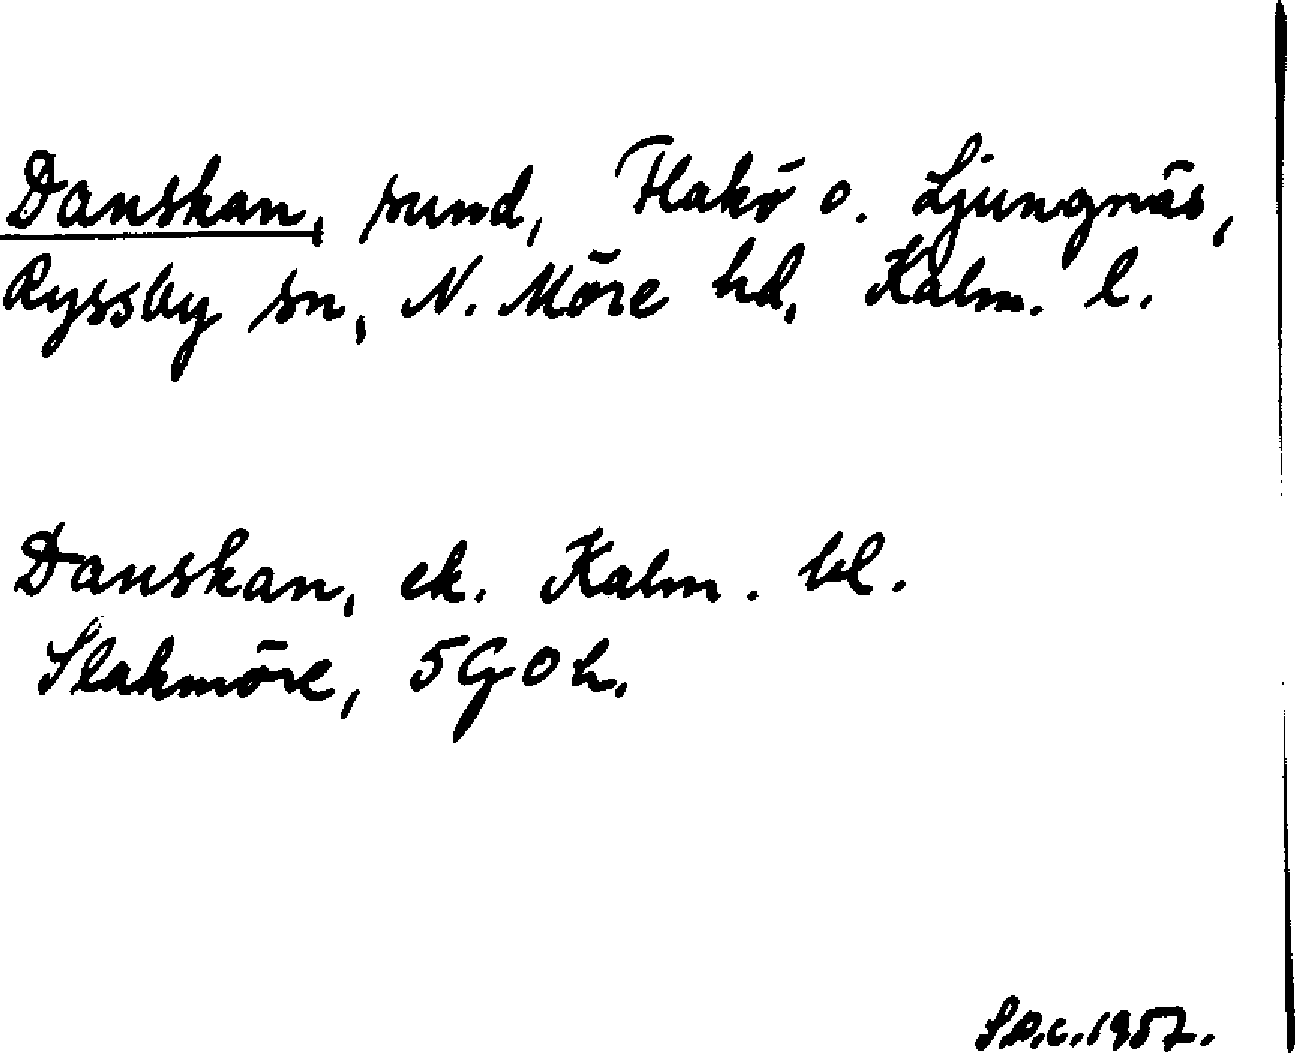 Danskan, sund, Flakö o. Ljungnäs,
Ryssby sn, N. Möre hd, Kalm. l.
Danskan, ek. Kalm. bl.
Slakmöre, 5G0h.
1957.